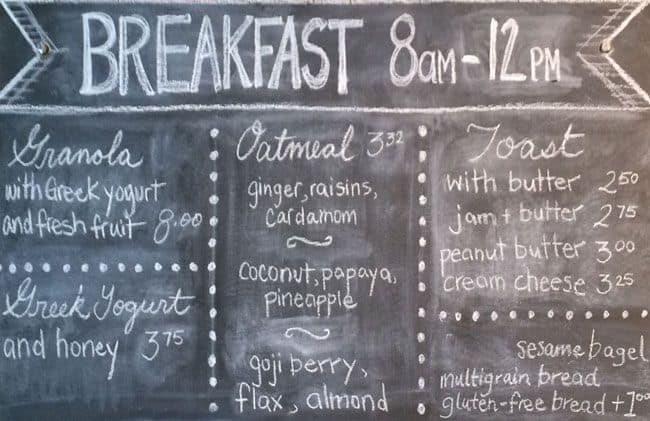 BREAKFAST 8AM-12PM
Granola
with Greek yogurt
and fresh fruit 8.00
Greek Yogurt
and honey 3.75
Oatmeal 3.32
ginger, raisins,
cardamom
coconut, papaya,
pineapple
goji berry,
flax, almond
Toast
with butter 2.50
jam + butter 2.75
peanut butter 3.00
cream cheese 3.25
sesame bagel
multigrain bread
gluten-free bread +1.00